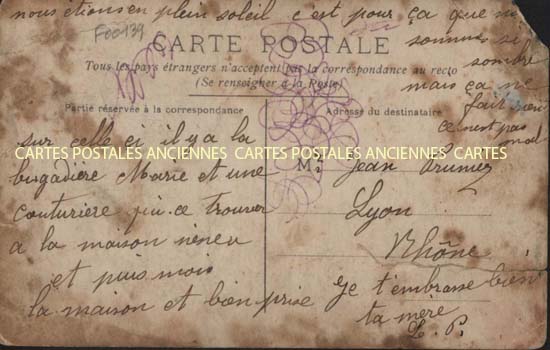 nous étions en plein soleil c'est pour ça que nous
sommes si
sombre
mais ça ne
fait rien
ce n'est pas
mal
Foo-139
CARTE POSTALE
Tous les pays étrangers n'acceptent pas la correspondance au recto
(Se renseigner à la Poste)
Partie réservée à la correspondance
Adresse du destinataire
sur celle ci il y a la
bugadière Marie et une
couturière qui ce trouver
a la maison
et puis moi
la maison et bien prise
CARTES POSTALES ANCIENNES CARTES POSTALES ANCIENNES CARTES
M. Jean
Lyon
Rhône
Je t'embrasse bien
ta mère
L. P.